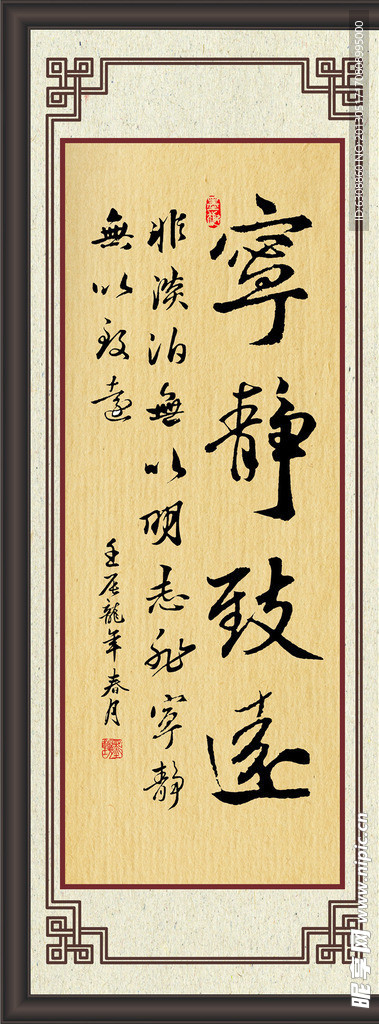 寧靜致遠
非淡泊無以明志非寧靜
無以致遠
壬辰龍年春月
ID:6308860 NO:20130517170808995000
昵享网 www.nipic.cn